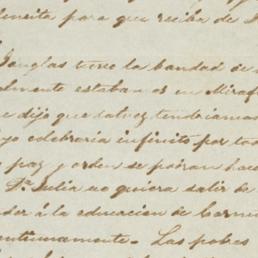 para que reciba de
Douglas tiene la bondad de
almente estabamos en Miraf
e dijo que talvez tendriamos
yo celebraria infinito por to
paz y orden se podran hace
Da. Julia no quiera salir de
dor á la educacion de Carmi
ontinuamente. Las pobres